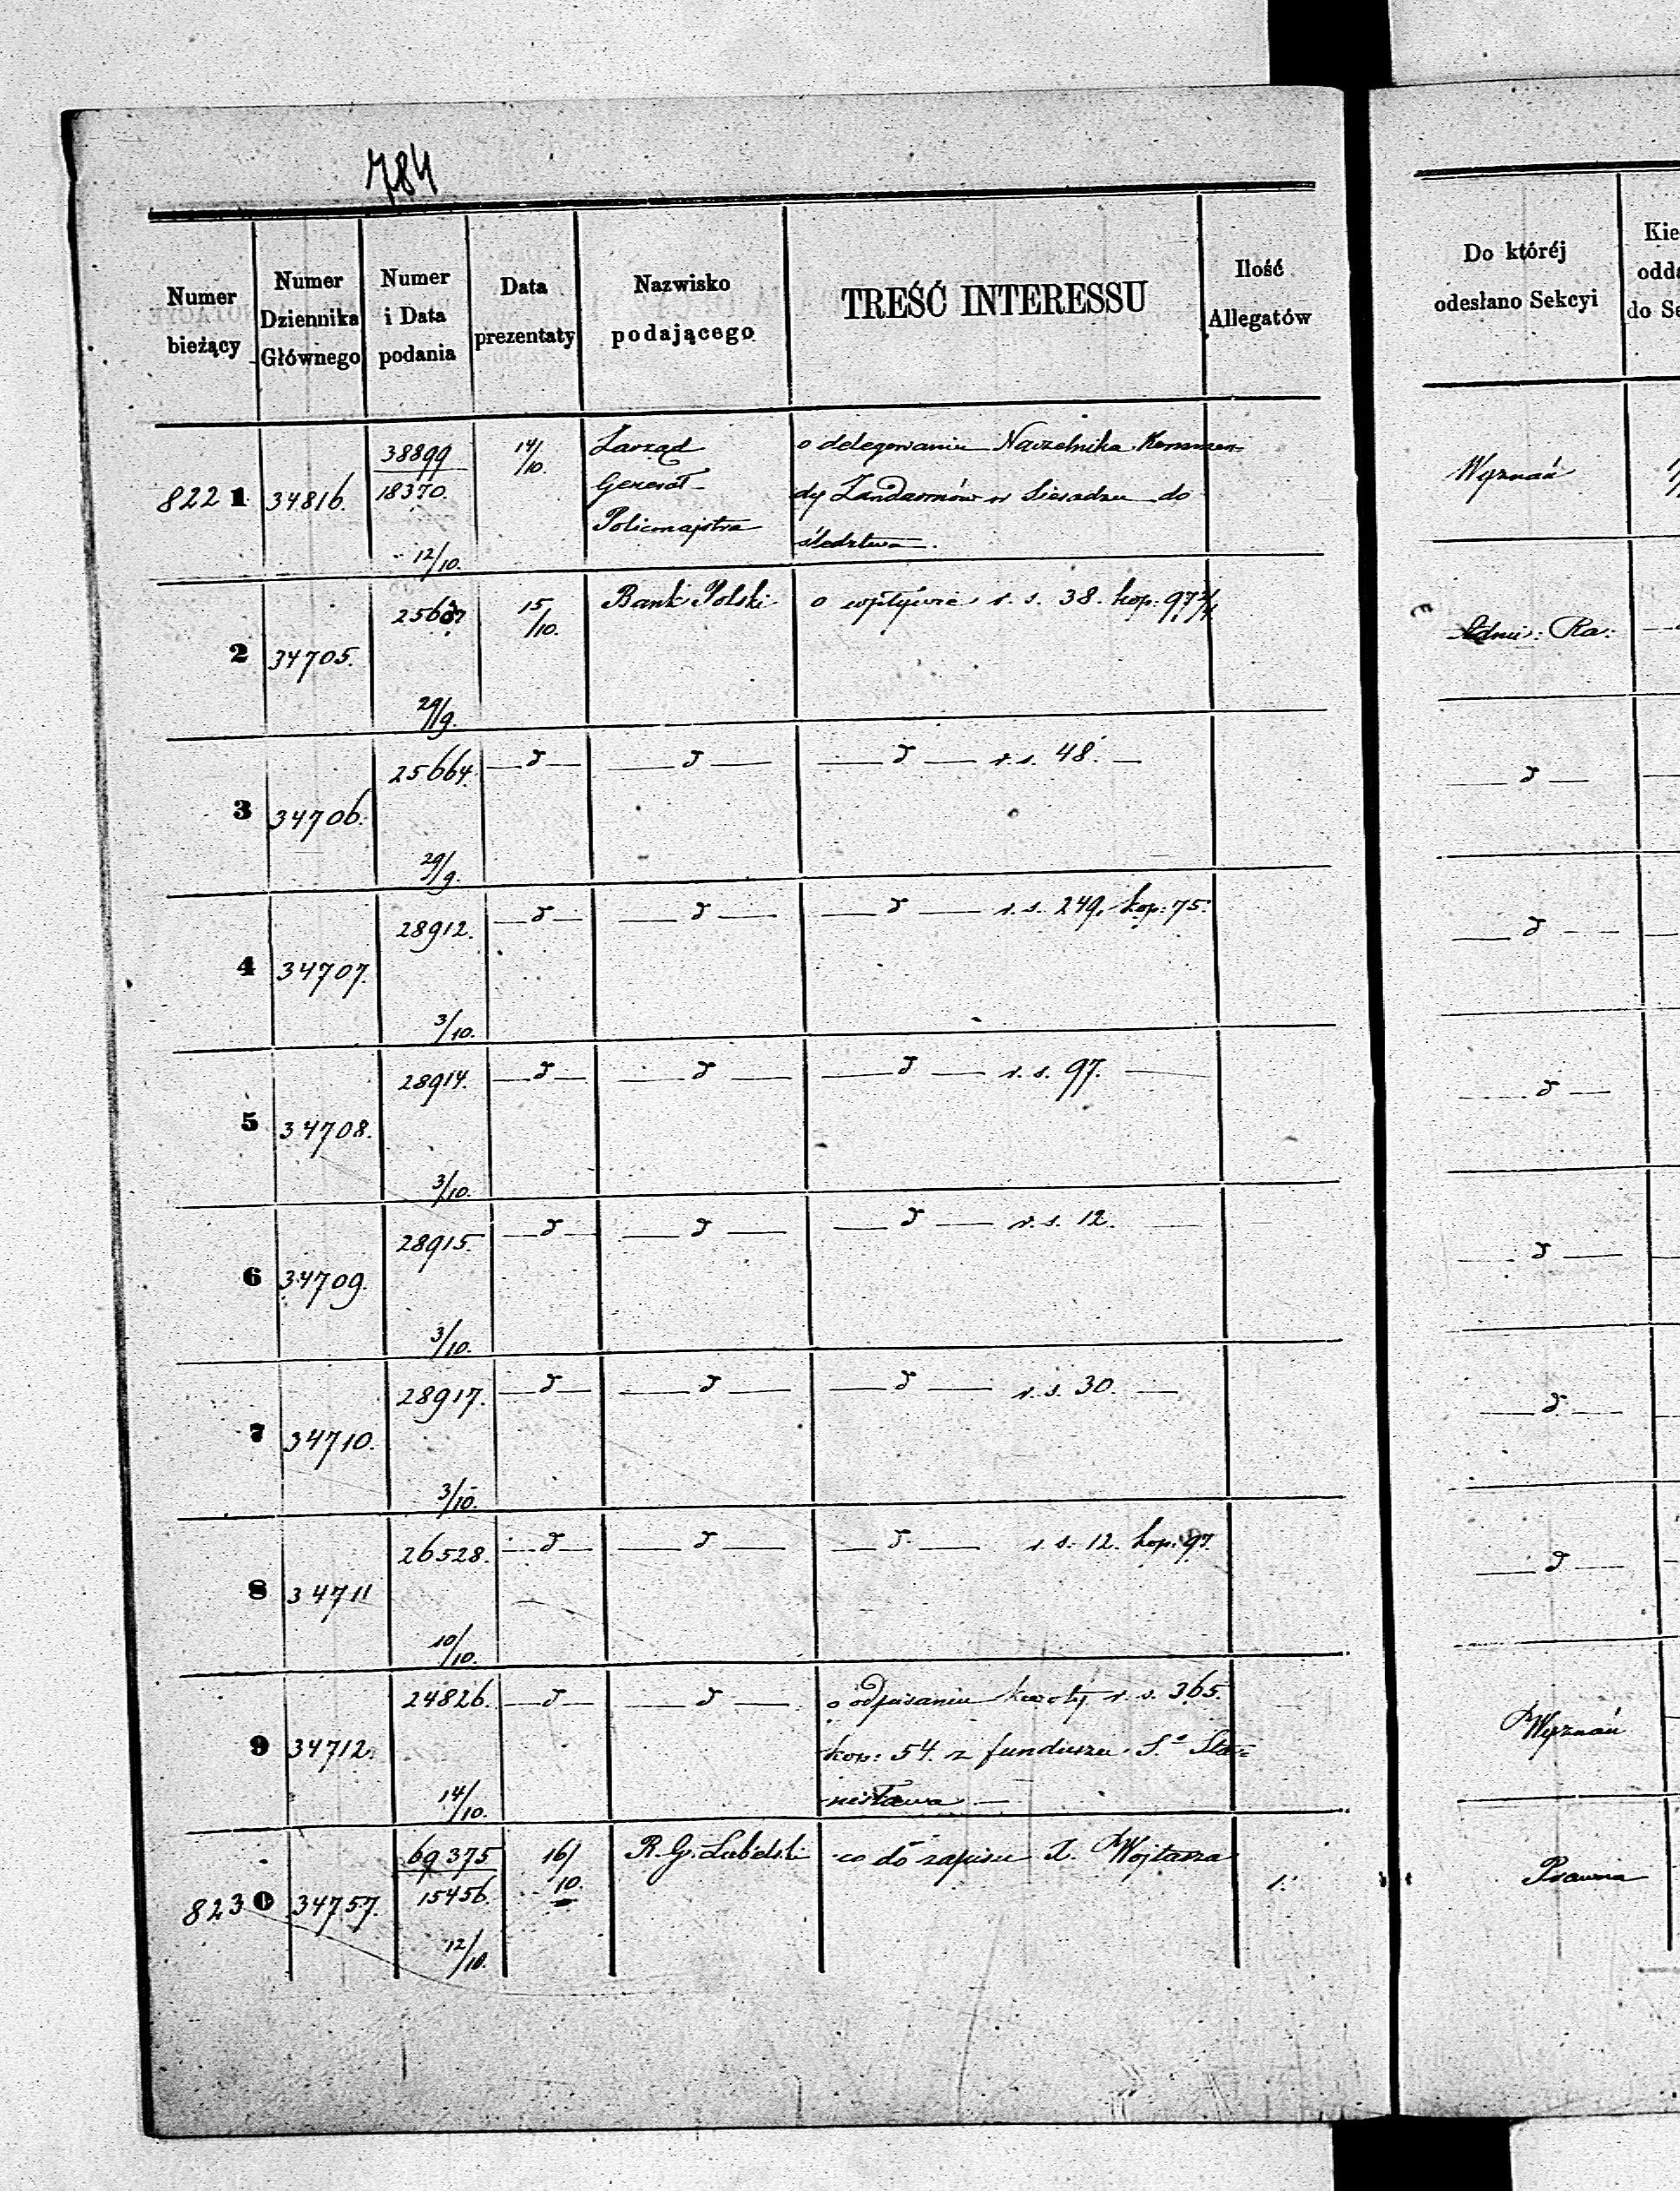 784
Numer bieżący
Numer Dziennika Głównego
Numer i Data podania
Data prezentaty
Nazwisko podającego
TREŚĆ INTERESSU
Ilość Allegatów
Do któréj odesłano Sekcyi
Kie
odda
do Se
8221 34816. 38899 14/10. Zarząd o delegowaniu Naczelnika Kommen=
18370. Generał- dy Żandarmów w Sieradzu do Wyznań
12/10. Policmajstra śledztwa.
2 34705. 15/10. Bank Polski o wpływie r. s. 38. kop: 97
29/9.
3 34706. 25664. — d — — d — — d — r. s. 48. — — d —
29/9.
4 34707. 28912. — d — — d — — d — r. s. 249. kop: 75. — d —
3/10.
5 34708. 28914. — d — — d — — d — r. s. 97. — — d —
3/10.
6 34709. 28915. — d — — d — — d — r. s. 12. — — d —
3/10.
7 34710. 28917. — d — — d — — d — r. s. 30. — — d —
3/10.
8 34711 26528. — d — — d — — d — r. s. 12. kop: 97. — d —
10/10.
9 34712. 24826. — d — — d — o odpisaniu kwoty r. s. 365.
kop: 54. z funduszu S.º Sta= Wyznań
14/10. nisława —
8230 34757. 69375 16/10. R. G. Lubelski co do zapisu X. Wojtasza 1. Prawna
15456.
12/10.